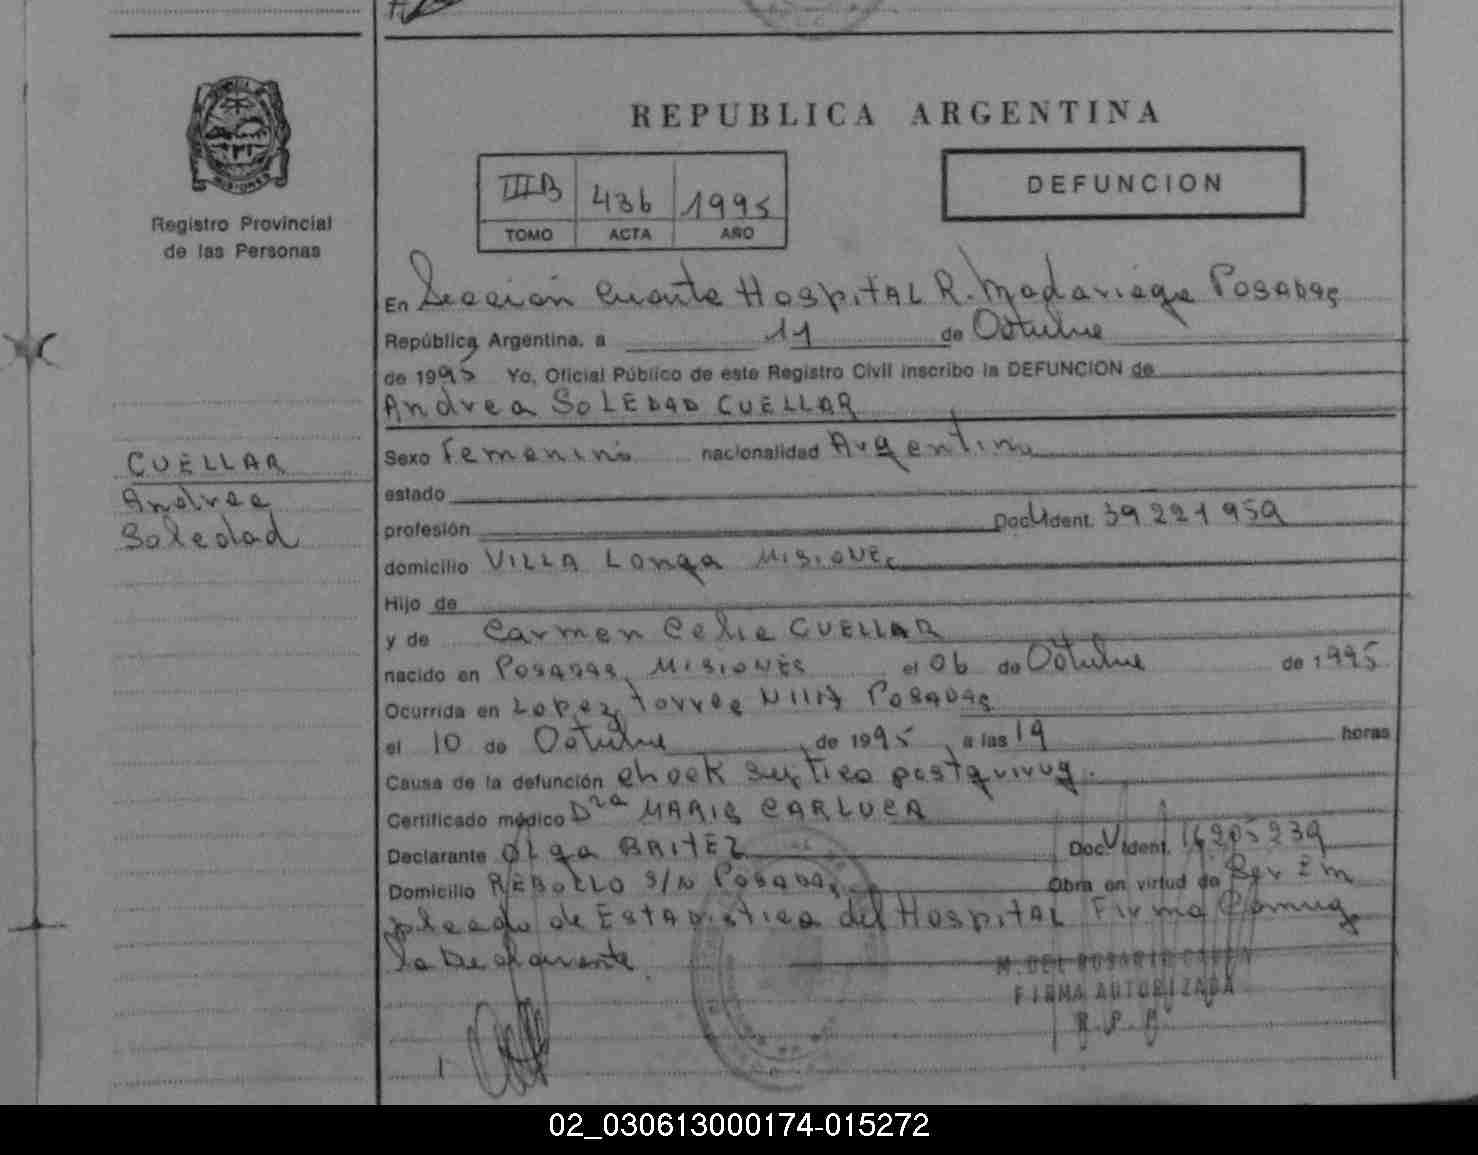 REPUBLICA ARGENTINA
MISIONES
Registro Provincial
de las Personas
III B 436 1995
TOMO ACTA AÑO
DEFUNCION
En Sección Cuarta HospitAL R. Madariaga Posadas
República Argentina, a 11 de Octubre
de 1995 Yo, Oficial Público de este Registro Civil inscribo la DEFUNCION de
Andrea SoLEDAD CUELLAR
CUELLAR
Andrea
Soledad
Sexo Femenino nacionalidad Argentina
estado
profesión Doc. Ident. 39 221 959
domicilio VILLA Longa MISIONES
Hijo de
y de Carmen Celia CUELLAR
nacido en POSADAS, MISIONES el 06 de Octubre de 1995
Ocurrida en Lopez Torres POSADAS
el 10 de Octubre de 1995 a las 19 horas
Causa de la defunción shock septico
Certificado médico Dra MARIS CARLUCA
Declarante OLga BRITEZ Doc. Ident. 16205239
Domicilio REBOLLO S/N POSADAS Obra en virtud de Ser Em
pleado de EstADistica del HospitAL Firma Conmigo
la Declarante.
M. DEL ROSARIO
FIRMA AUTORIZADA
R.P.P.
02_030613000174-015272